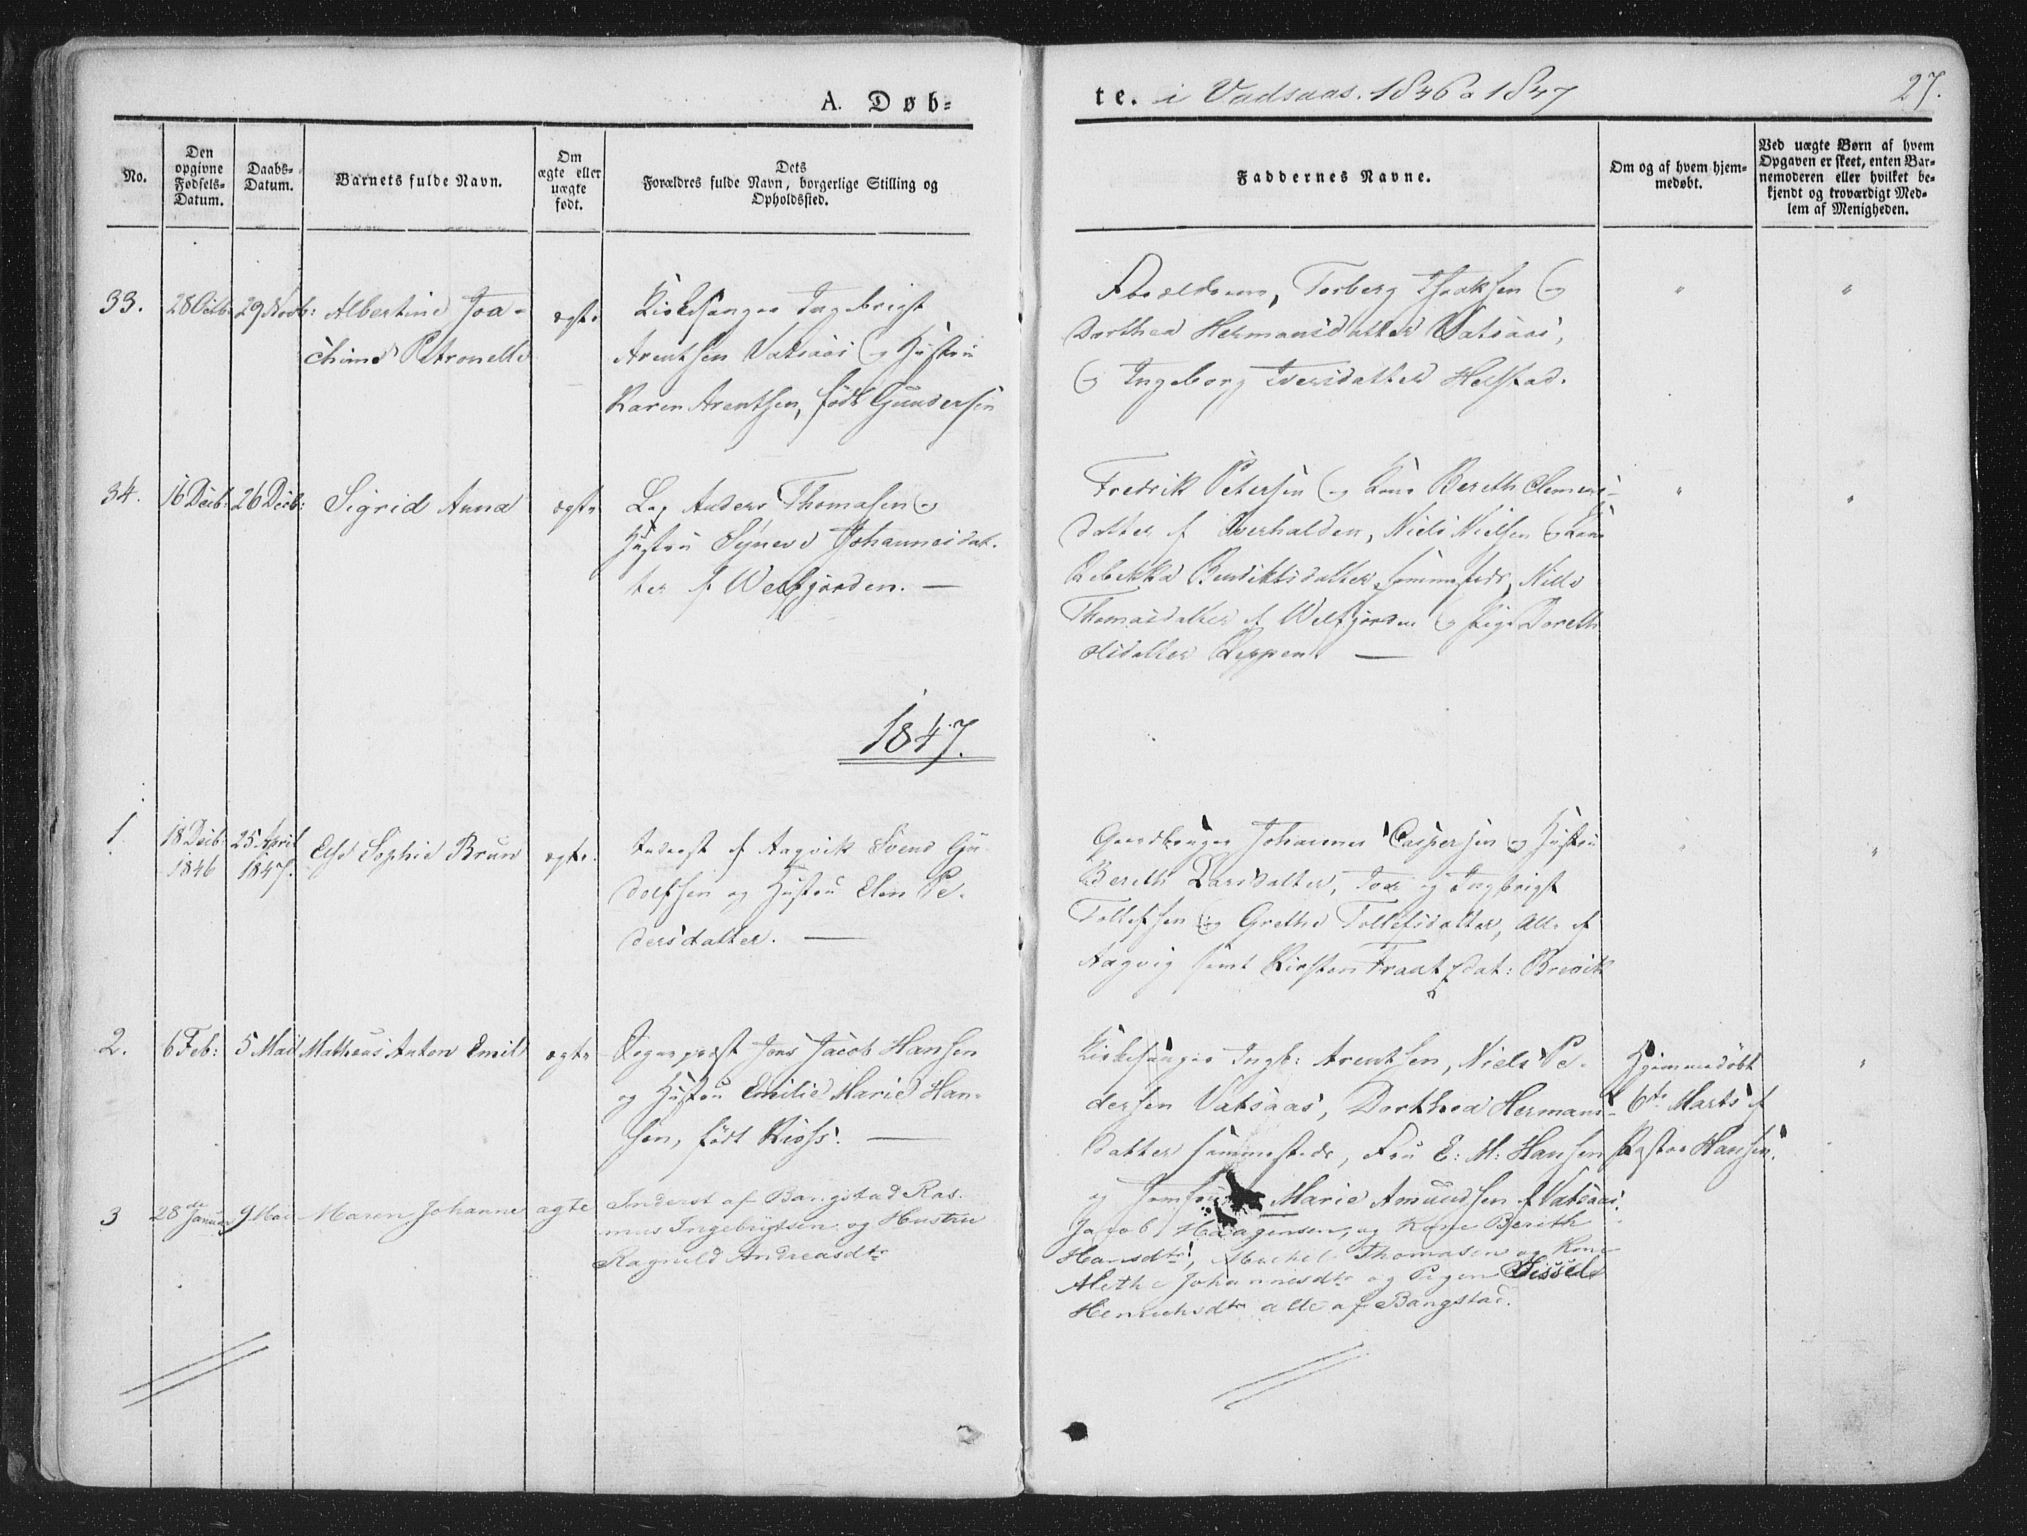 A. Døb-
te. i Vadsaas. 1846 a 1847
27.
No.
Den
opgivne
Fødsels-
Datum.
Daabs-
Datum.
Barnets fulde Navn.
Om
ægte eller
uægte
født.
Dets
Forældres fulde Navn, borgerlige Stilling og
Opholdssted.
Faddernes Navne.
Om og af hvem hjem-
medøbt.
Ved uægte Børn af hvem
Opgaven er skeet, enten Bar-
nemoderen eller hvilket be-
kjendt og troværdigt Med-
lem af Menigheden.
33. 28 Octb: 29 Novb: Albertine Joa-
chime Petronelle
ægte
Kirkesanger Ingebrigt
Arentsen Vatsaas og Hustru
Karen Arentsen, født Gundersen
Forældrene, Torberg Isaksen og
Dorthea Hermansdatter Vatsaas,
og Ingeborg Iversdatter
" "
34. 16 Decb: 26 Decb: Sigrid Anna ægte
Anders Thomasen og
Hustru Synev Johannesdat-
ter af Welfjorden. —
Fredrik Petersen og Kone Bereth Clemens-
datter af Overhalden, Niels Nielsen og Kone
Rebekka Bendiktsdatter sammesteds, Nille
Thomasdatter af Welfjorden og Pige Doreth
Olsdatter —
" "
1847.
1. 18 Decb: 25 April
1846 1847.
Else Sophie Brun ægte.
Inderst af Aagvik Svend Gu-
dolfsen og Hustru Elen Pe-
dersdatter. —
Gaardbruger Johannes Caspersen og Hustru
Bereth Larsdatter, Tore og Ingebrigt
Tollefsen og Grethe Tollefsdatter, Alle af
Aagvig samt Kirsten dat: Brevik
" "
2. 6 Feb: 5 Mai Matheus Anton Emil ægte
Sognepræst Jens Jacob Hansen
og Hustru Emilie Marie Han-
sen, født Kiøs. —
Kirkesanger Ingb: Arentsen, Niels Pe-
dersen Vatsaas, Dorthea Hermans-
datter sammesteds, Fru E: M: Hansen
og Jomfru Marie Amundsen af Vatsaas.
Hjemmedøbt
6te Marts af
Pastor Hansen.
"
3 28de Januar 9 Mai Maren Johanne ægte
Inderst af Bangstad Ras-
mus Ingebrigtsen og Hustru
Ragnild Andreasdtr
Jacob Haagensen og Kone Berith
Hansdtr, Michel Thomasen og Kone
Alethe Johannesdtr og Pigen Sissel
Henrichsdtr alle af Bangstad.